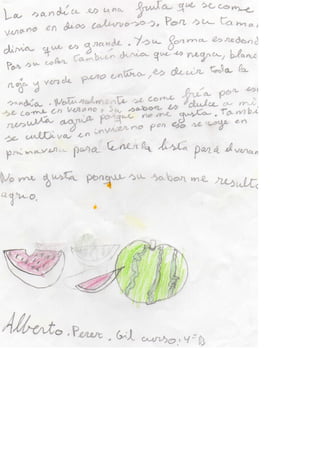 La sandía es una fruta que se come
verano en días calurosos. Por su tama
diria que es grande. Y su forma es redond
Por su color también diria que es negra, blanc
roja y verde pero entera, es decir toda la
sandía. Naturalmente se come fría por eso
se come en verano. Su sabor es dulce a mi
resulta agria porque no me gusta. Tambi
se cultiva en invierno por eso se coge en
primavera para tenerla lista para el veran
No me gusta porque su sabor me resulta
agrio.
Alberto. Perez. Gil curso: 4º B